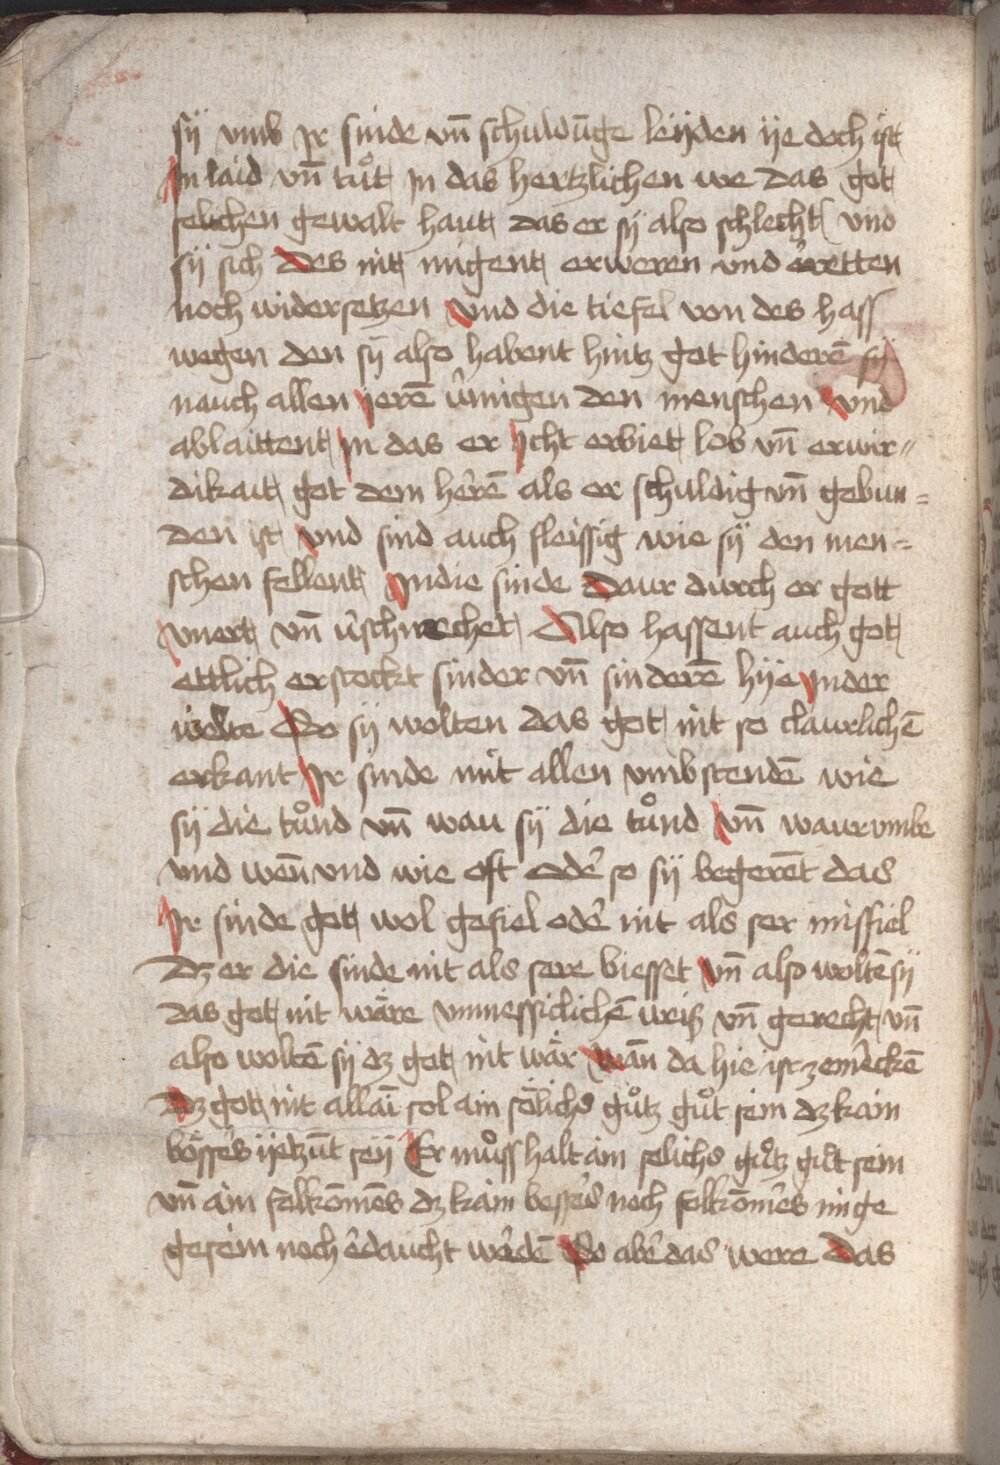 sÿ vmb Ir sünde vn̄ schuldūge leÿden ÿe doch ist
In laid vn̄ tůt In das hertzlichen we das got
selichen gewalt haut das er sÿ also schlecht vnd
sÿ sich des nit mügent erweren vnd ẽretten
noch widersetzen vnd die tiefel von des hass
wegen den sÿ also habent hintz got hinderē sÿ
nauch allen Ierē v̂mügen den menschen vnd
ablaittent In das er Icht erbiet lob vn̄ erwir-
dikait got dem hẽrē als er schuldig vn̄ gebun-
den ist vnd sind auch fleissig wie sÿ den men-
schen fellent In die sünde Daur durch er gott
vnert vn̄ v̂schmechet Also hassent auch got
ettlich erstockt sünder vn̄ sünderē hÿe In der
welte So sÿ wolten das got nit so claurlichē
erkant Ir sünde mit allen vmbstendē wie
sÿ die tůnd vn̄ wau sÿ die tůnd vn̄ waurvmbe
vnd wen̄ vnd wie oft odẽ so sÿ begerēt das
Ir sünde got wol gefiel odẽ nit als ser missfiel
Dz er die sünde nit als sere biesset vn̄ also woltē sÿ
das got nit wäre vnmessiclichē weis vn̄ gerecht vn̄
also woltē sÿ dz got nit wär wan̄ da hie ist ze mẽckē
Dz got nit allai̅ sol ain sölichs gůtz gůt sein dz kain
bössẽs ÿetzūt seÿ Er můss halt ain selichs gůtz gůt sein
vn̄ ain folkōmēs dz kain bessẽs noch folkōmẽs müge
gesein noch ẽdaucht wẽdē So abẽ das were Das